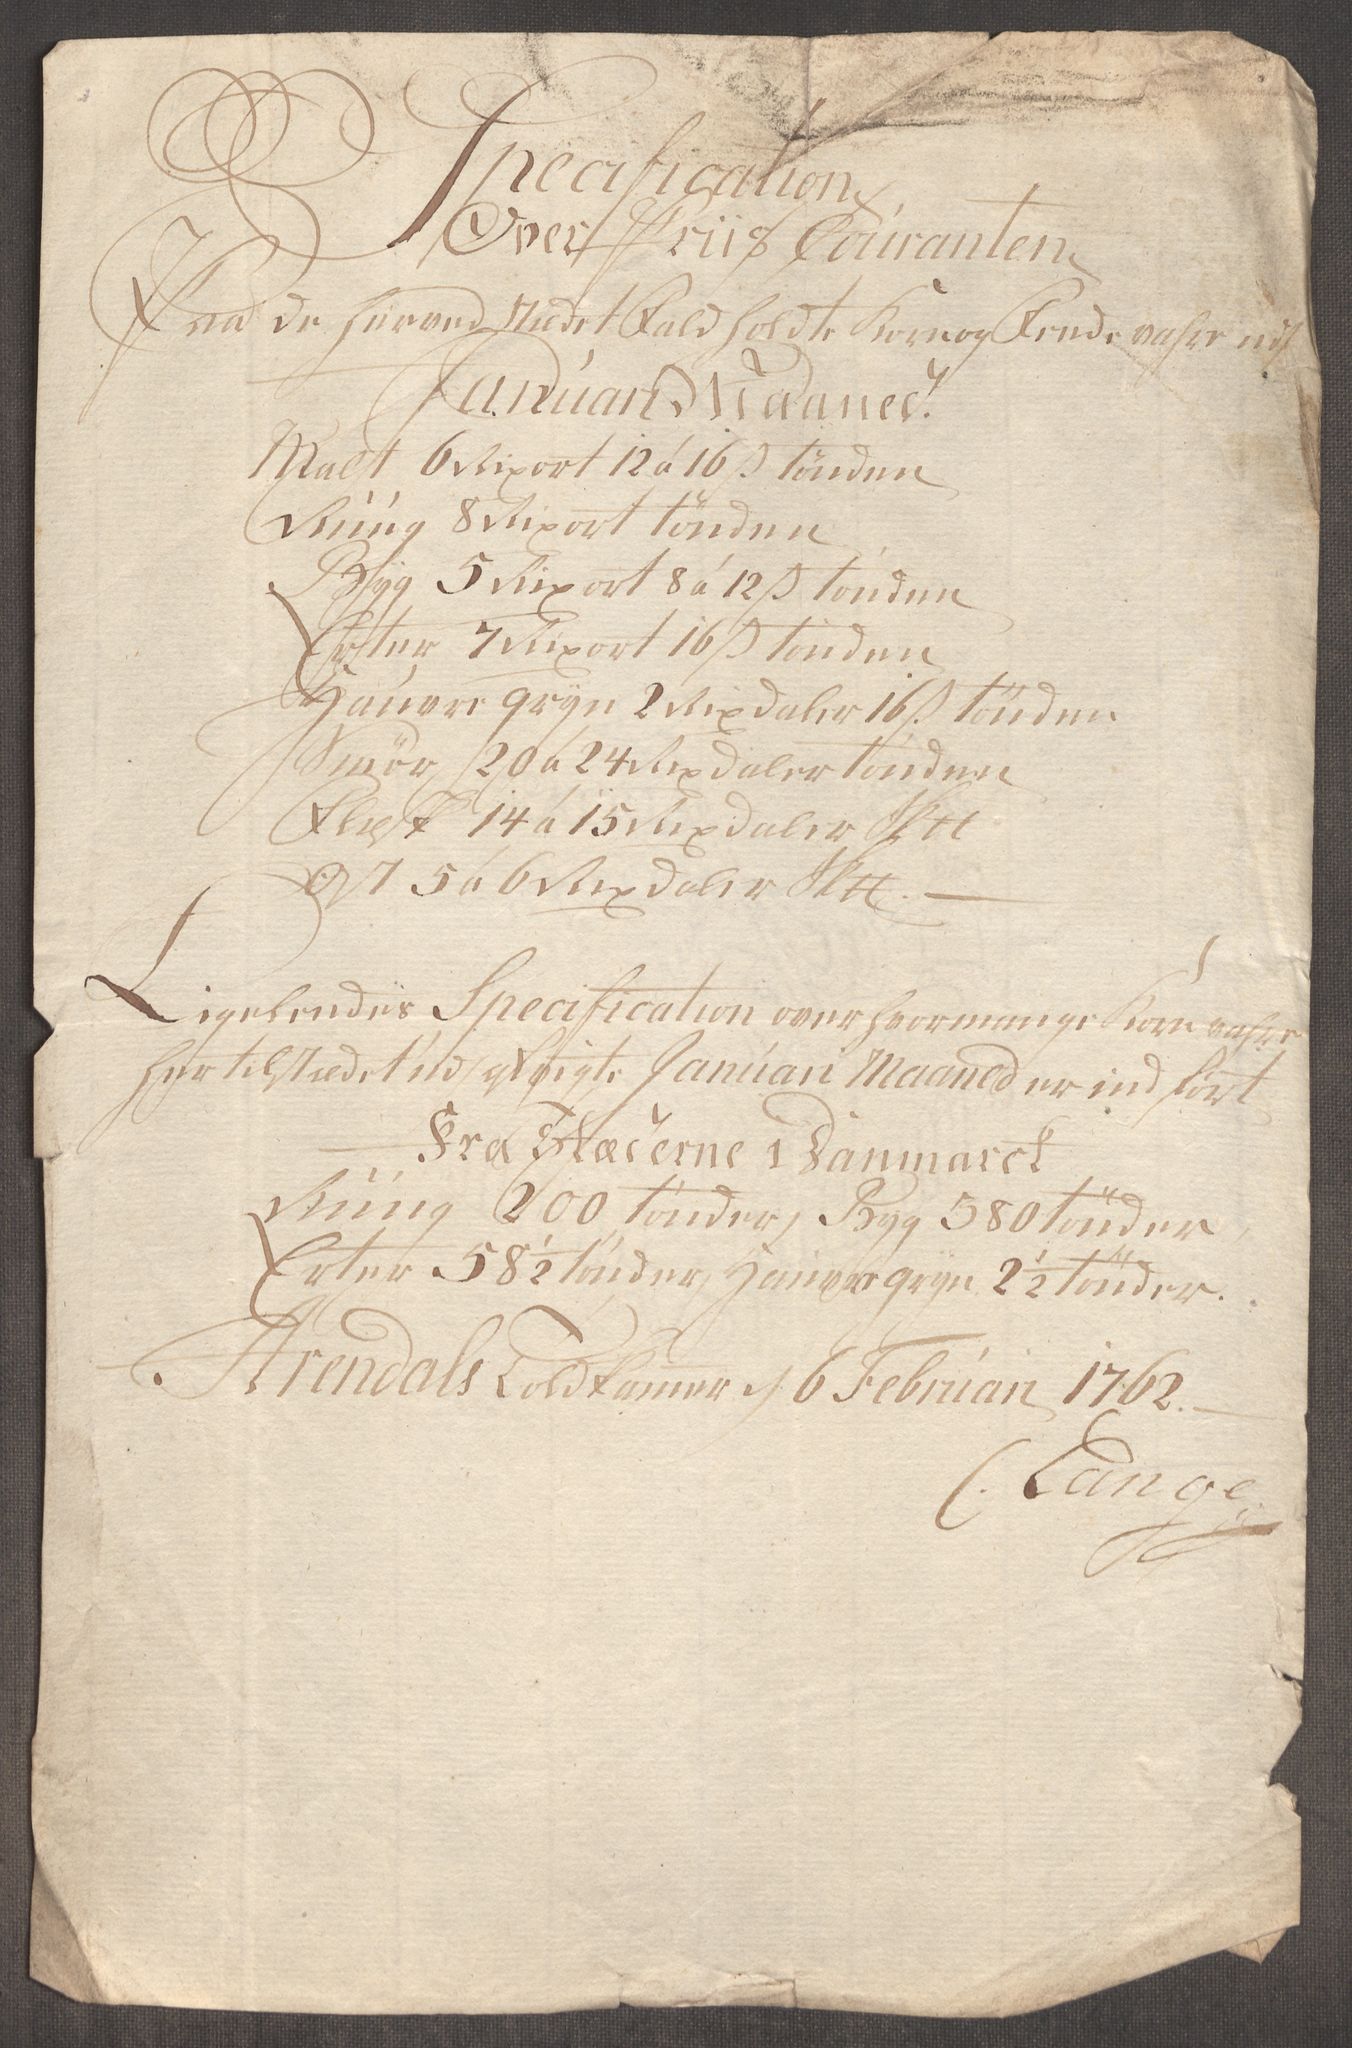 Specification
Over Priis Couranten
Paa de her ved Stædet Fald holdte Korn og Fende vahre udj
Januari Maaned.
Malt 6 Rixort 12 á 16 ß tønden
Rúúg 8 Rixort tønden
Byg 5 Rixort 8 á 12 ß tønden
Erter 7 Rixort 16 ß tønden
Haúvre gryn 2 Rixdaler 16 ß tønden
Smør 20 á 24 Rixdaler tønden
Flesk 14 á 15 Rixdaler Sk℔
Ost 5 á 6 Rixdaler Sk℔.
Ligeledes Specification over hvormange Korn vahre
her til Stædet udj Januari Maaned er ind ført
Fra Stæderne i Danmarck
Rúúg 200 tønder, Byg 580 tønder,
Erter 58 1/2 tønder, Haúvre gryn 2 1/2 tønder.
Arendals Toldkamer d 6 Februari 1762.
C. Lange